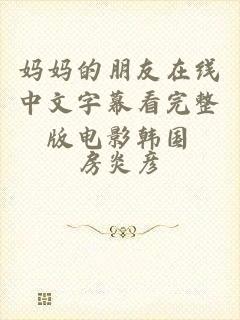 妈妈的朋友在线
中文字幕看完整
版电影韩国
房炎彦